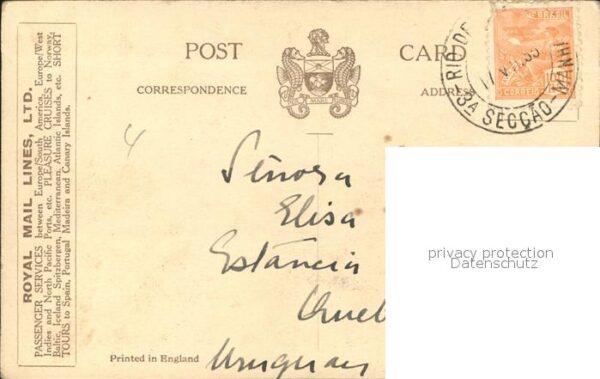 ROYAL MAIL LINES, LTD.
PASSENGER SERVICES between Europe/South America, Europe/West
Indies and North Pacific Ports, etc. PLEASURE CRUISES to Norway,
Baltic, Iceland Spitzbergen, Mediterranean, Atlantic Islands, etc. SHORT
TOURS to Spain, Portugal Madeira and Canary Islands.
POST CARD
CORRESPONDENCE
ADDRESS
BRASIL
CORREIO
RIO DE
3a SECÇÃO-MANHÃ
Señora
Elisa
Estancia
Uruguay
privacy protection
Datenschutz
Printed in England